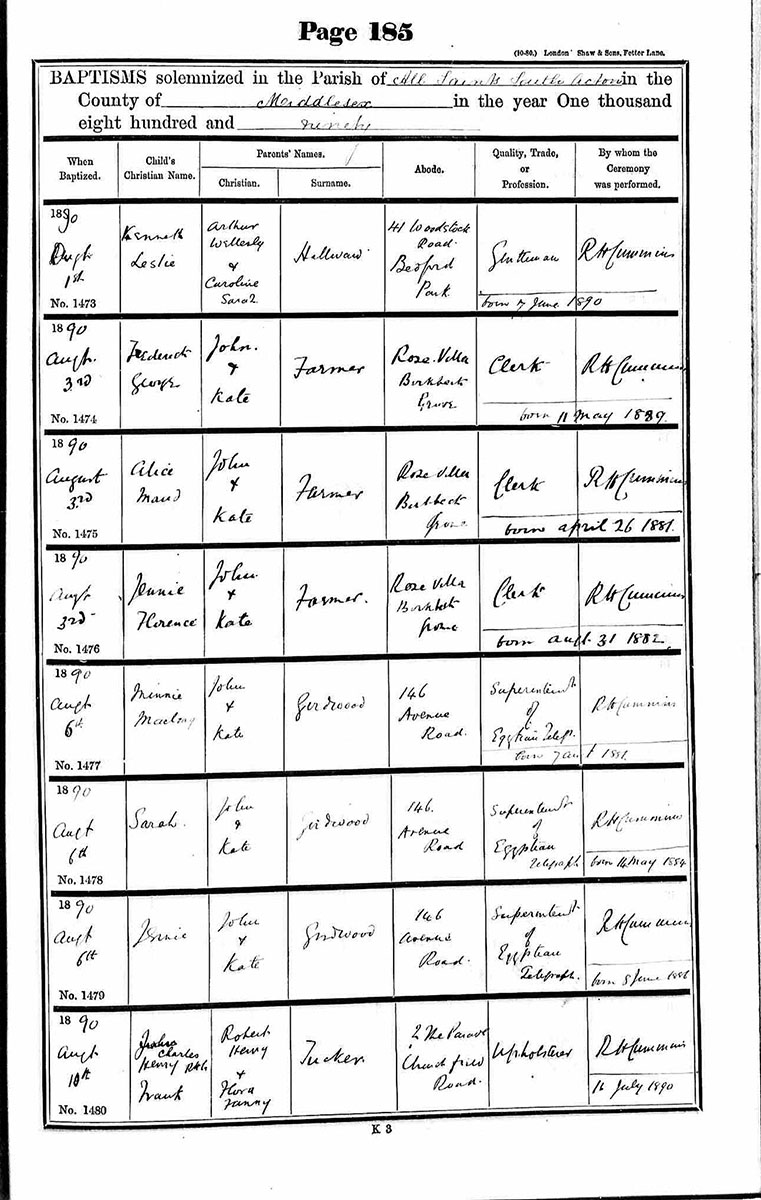 Page 185
(10-80.) London Shaw & Sons, Fetter Lane.
BAPTISMS solemnized in the Parish of All Saints South Acton in the
County of Middlesex in the year One thousand
eight hundred and ninety
When Baptized.
Child's Christian Name.
Parents' Names.
Christian.
Surname.
Abode.
Quality, Trade, or Profession.
By whom the Ceremony was performed.
1890
Augt
1st
No. 1473
Kenneth
Leslie
Arthur
&
Caroline
Sarah
41 Woodstock
Road
Bedford
Park
Gentleman
born 7 June 1890
R H Cummins
1890
Augt.
3rd
No. 1474
Frederick
George
John.
&
Kate
Farmer
Rose Villa
Birkbeck
Grove
Clerk
born 11 May 1889.
R H Cummins
1890
August
3rd
No. 1475
Alice
Maud
John
&
Kate
Farmer
Rose Villa
Birkbeck
Grove
Clerk
born april 26 1881.
R H Cummins
1890
Augt
3rd
No. 1476
Jennie
Florence
John
&
Kate
Farmer.
Rose Villa
Birkbeck
Grove
Clerk
born augt. 31 1882
R H Cummins
1890
Augt
6th
No. 1477
Minnie
John
&
Kate
Girdwood
146
Avenue
Road.
Superintendt
of
Egyptian Telegr.
born 1881.
R H Cummins
1890
Augt
6th
No. 1478
Sarah.
John
&
Kate
Girdwood
146.
Avenue
Road
Superintendt
of
Egyptian
Telegraph
born 14 May 1884
R H Cummins
1890
Augt
6th
No. 1479
Jennie
John
&
Kate
Girdwood
146
Avenue
Road.
Superintendt
of
Egyptian
Telegraph.
born 5 June 1886
R H Cummins
1890
Augt
10th
No. 1480
Charles
Henry
Frank
Robert
Henry
&
Flora
Fanny
Tucker
2 The Parade
Churchfield
Road.
Upholsterer
R H Cummins
16 July 1890
K 3